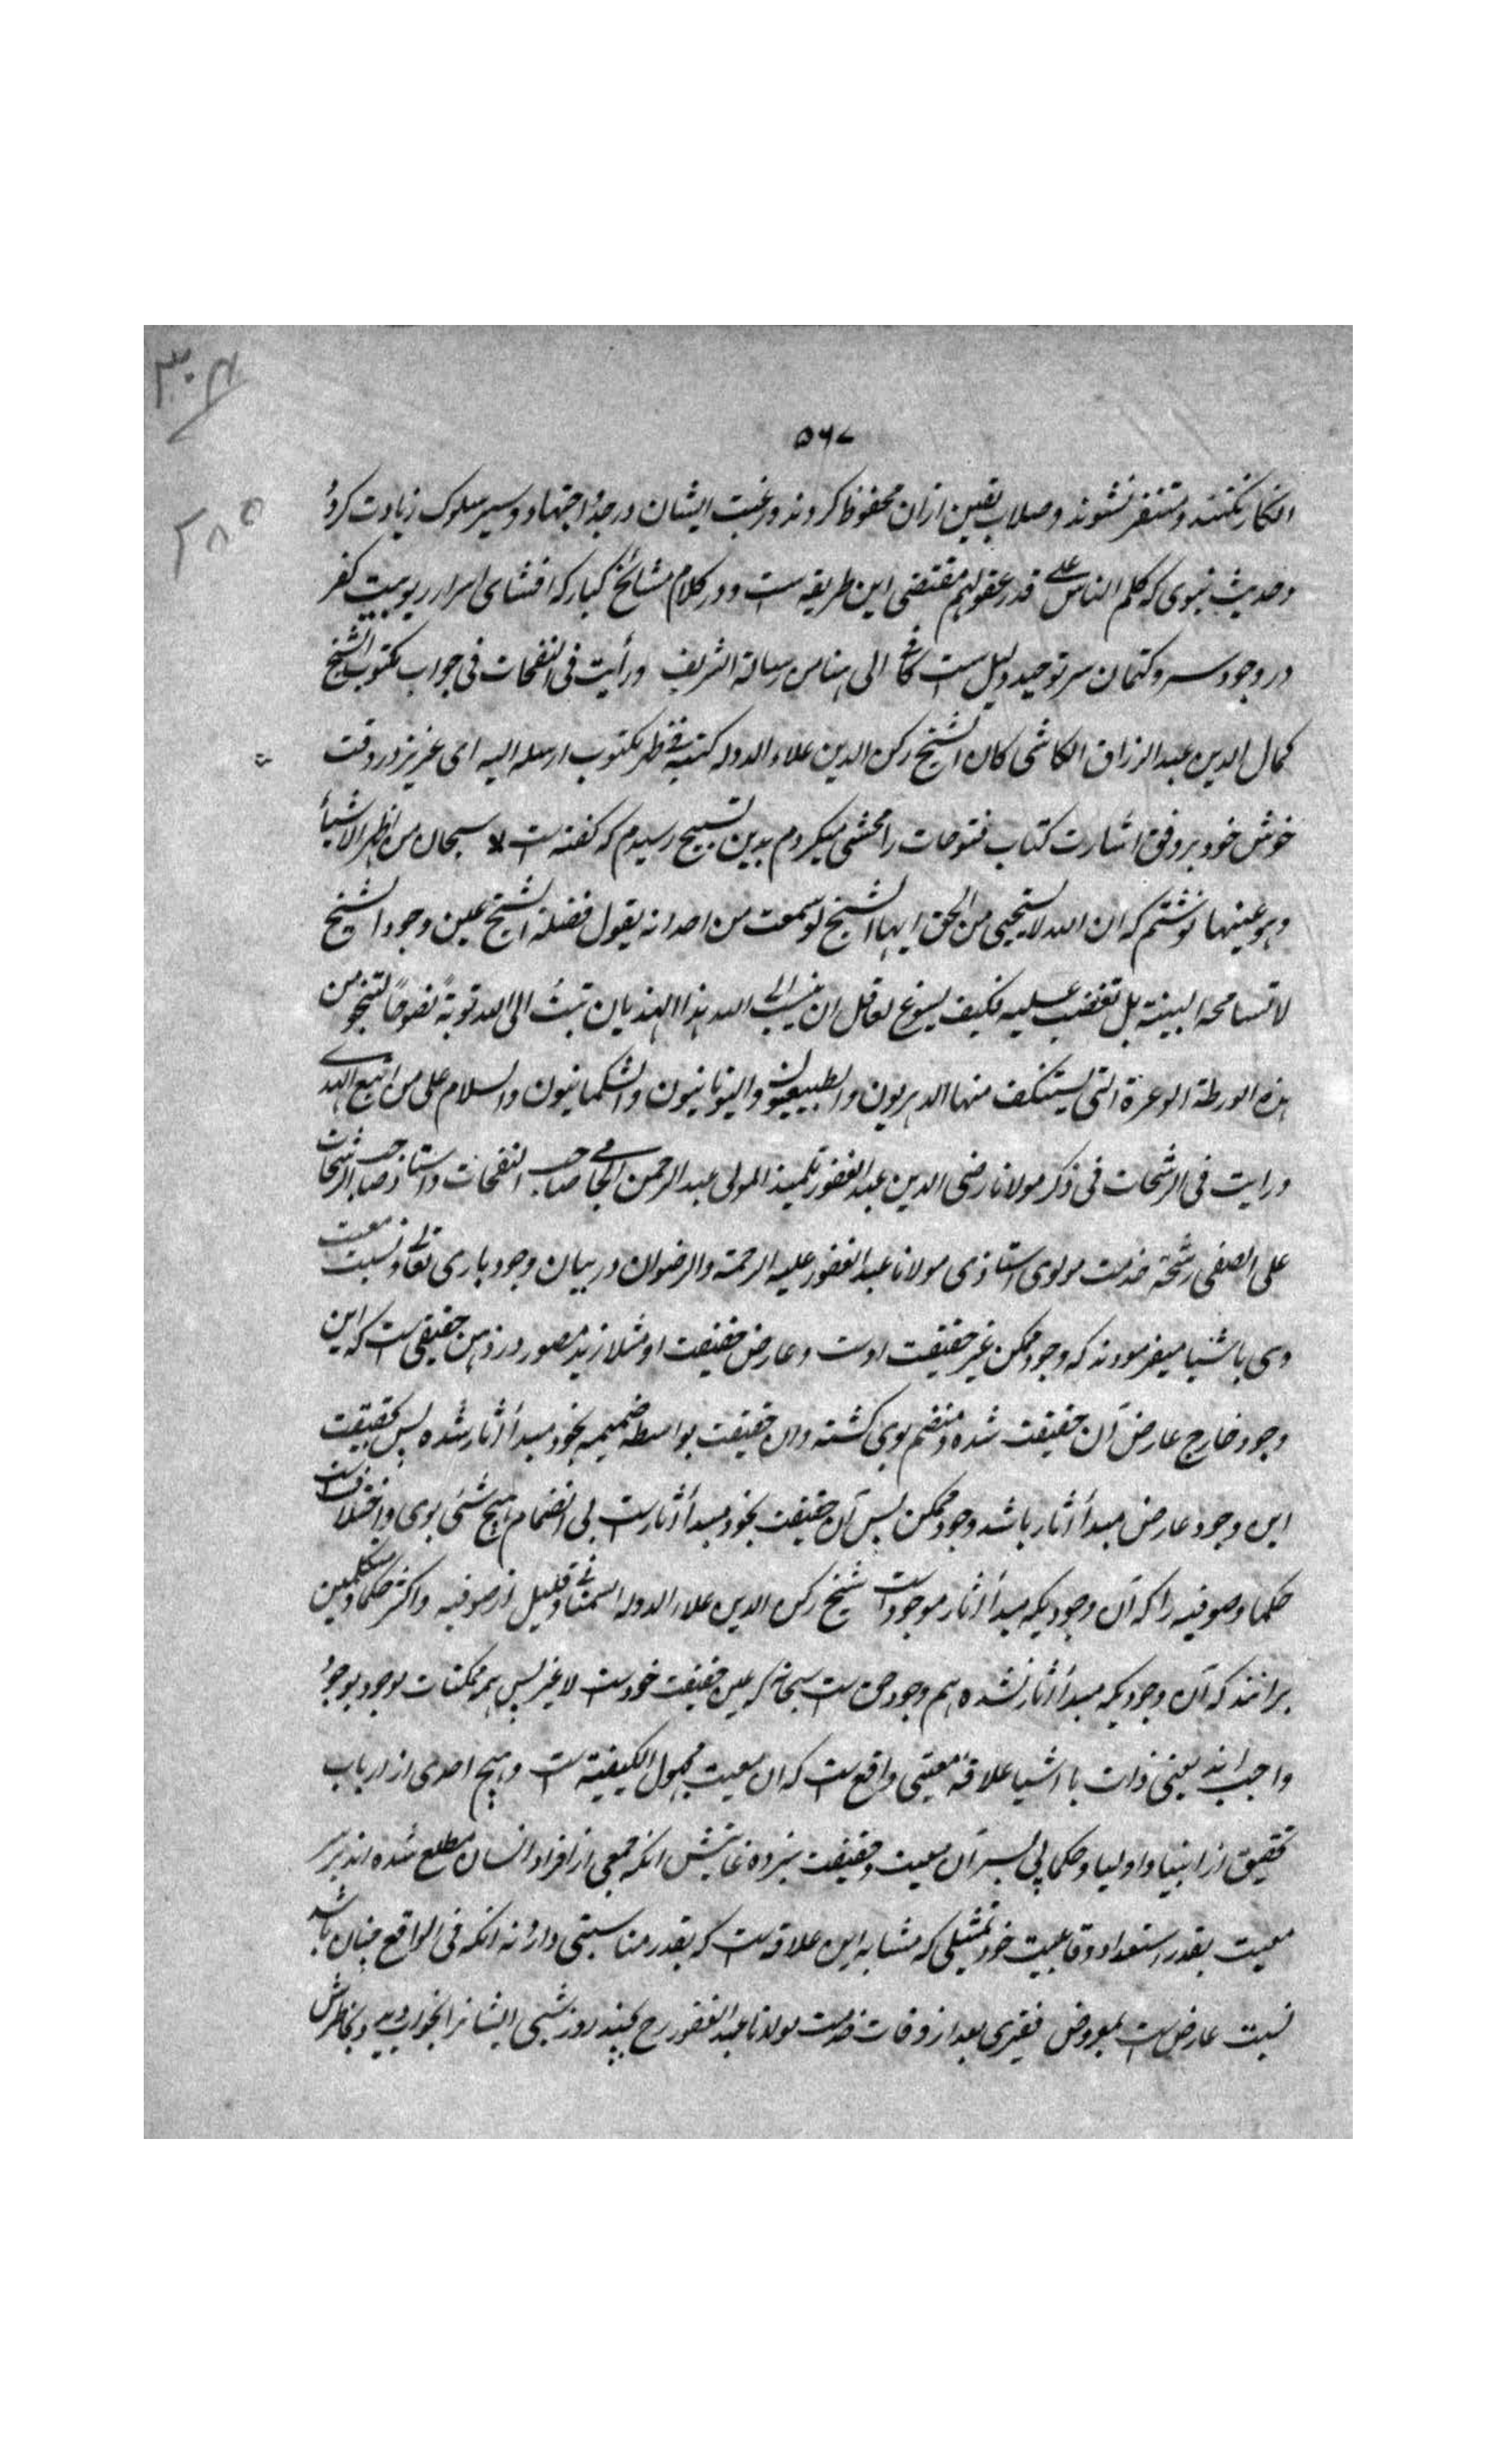 ۳۰۴
۵۶۷
۲۸۵
انکار نکنند و متنفر نشوند و صلاب یقین ازان محفوظ کردند و رغبت ایشان در جد و اجتهاد و سیر سلوک زیادت کردد
و حدیث نبوی که کلم الناس علی قدر عقولهم مقتضی این طریقه است و در کلام مشائخ کبار که افشای اسرار ربوبیت کفر
در وجود ستر و کتمان سر توحید دلیل است الی هنا من رسالة الشریف ورأیت فی النفحات فی جواب مکتوب الشیخ
کمال الدین عبد الرزاق الکاشی کان الشیخ رکن الدین علاء الدوله کتبه فی ظهر مکتوب ارسله الیه ای عزیز در وقت
خوش خود بر وفق اشارت کتاب فتوحات را محشی میکردم بدین تسبیح رسیدم که گفته است سبحان من اظهر الاشیاء
وهو عینها نوشتم که ان الله لا یستحیی من الحق ایها الشیخ لو سمعت من احد انه یقول فضلة الشیخ عین وجود الشیخ
لا تسامحه البتة بل تغضب علیه فکیف یسوغ لعاقل ان ینسب الی الله هذا الهذیان تب الی الله توبة نصوحا لتنجو من
هذه الورطة الوعرة التی یستنکف منها الدهریون والطبیعیون والیونانیون والشکمانیون والسلام علی من اتبع الهدی
ورایت فی الرشحات فی ذکر مولانا رضی الدین عبد الغفور تلمیذ المولی عبد الرحمن الجامی صاحب النفحات واستاذ صاحب الرشحات
علی الصفی رشحة خدمت مولوی استاذی مولانا عبد الغفور علیه الرحمة والرضوان در بیان وجود باری تعالی و نسبت معیت
وی باشیا میفرمودند که وجود ممکن غیر حقیقت اوست و عارض حقیقت او مثلا زید مصور در ذهن حقیقی است که این
وجود خارج عارض آن حقیقت شده و منضم بوی کشته وان حقیقت بواسطه ضمیمه بخود مبدأ آثار شده پس بحقیقت
این وجود عارض مبدأ آثار باشد وجود ممکن پس آن حقیقت بخود مبدأ آثار است بی انضمام هیچ شئ بوی و اختلاف است
حکما و صوفیه را که آن وجودیکه مبدأ آثار موجودات است شیخ رکن الدین علاء الدوله السمنانی و قلیل از صوفیه و اکثر حکما و متکلمین
برانند که آن وجودیکه مبدأ آثار نشده هم وجود حق است سبحانه که عین حقیقت خودست لا غیر پس همه ممکنات موجود بوجود
واجب اند یعنی ذات با اشیا علاقه معیتی واقع است که ان معیت مجهول الکیفیة است و هیچ احدی از ارباب
تحقیق از انبیا و اولیا و حکما پی بسر آن معیت و حقیقت نبرده غایتش انکه جمعی از افراد انسان مطلع شده اند بر سر
معیت بقدر استعداد و قابلیت خود تمثیلی که مشابه این علاقه است که بقدر مناسبتی دارد نه انکه فی الواقع چنان باشد
نسبت عارض است بمعروض فقیری بعد از وفات خدمت مولانا عبد الغفور رح بچند روز شبی ایشانرا بخواب دیده و بخاطرش